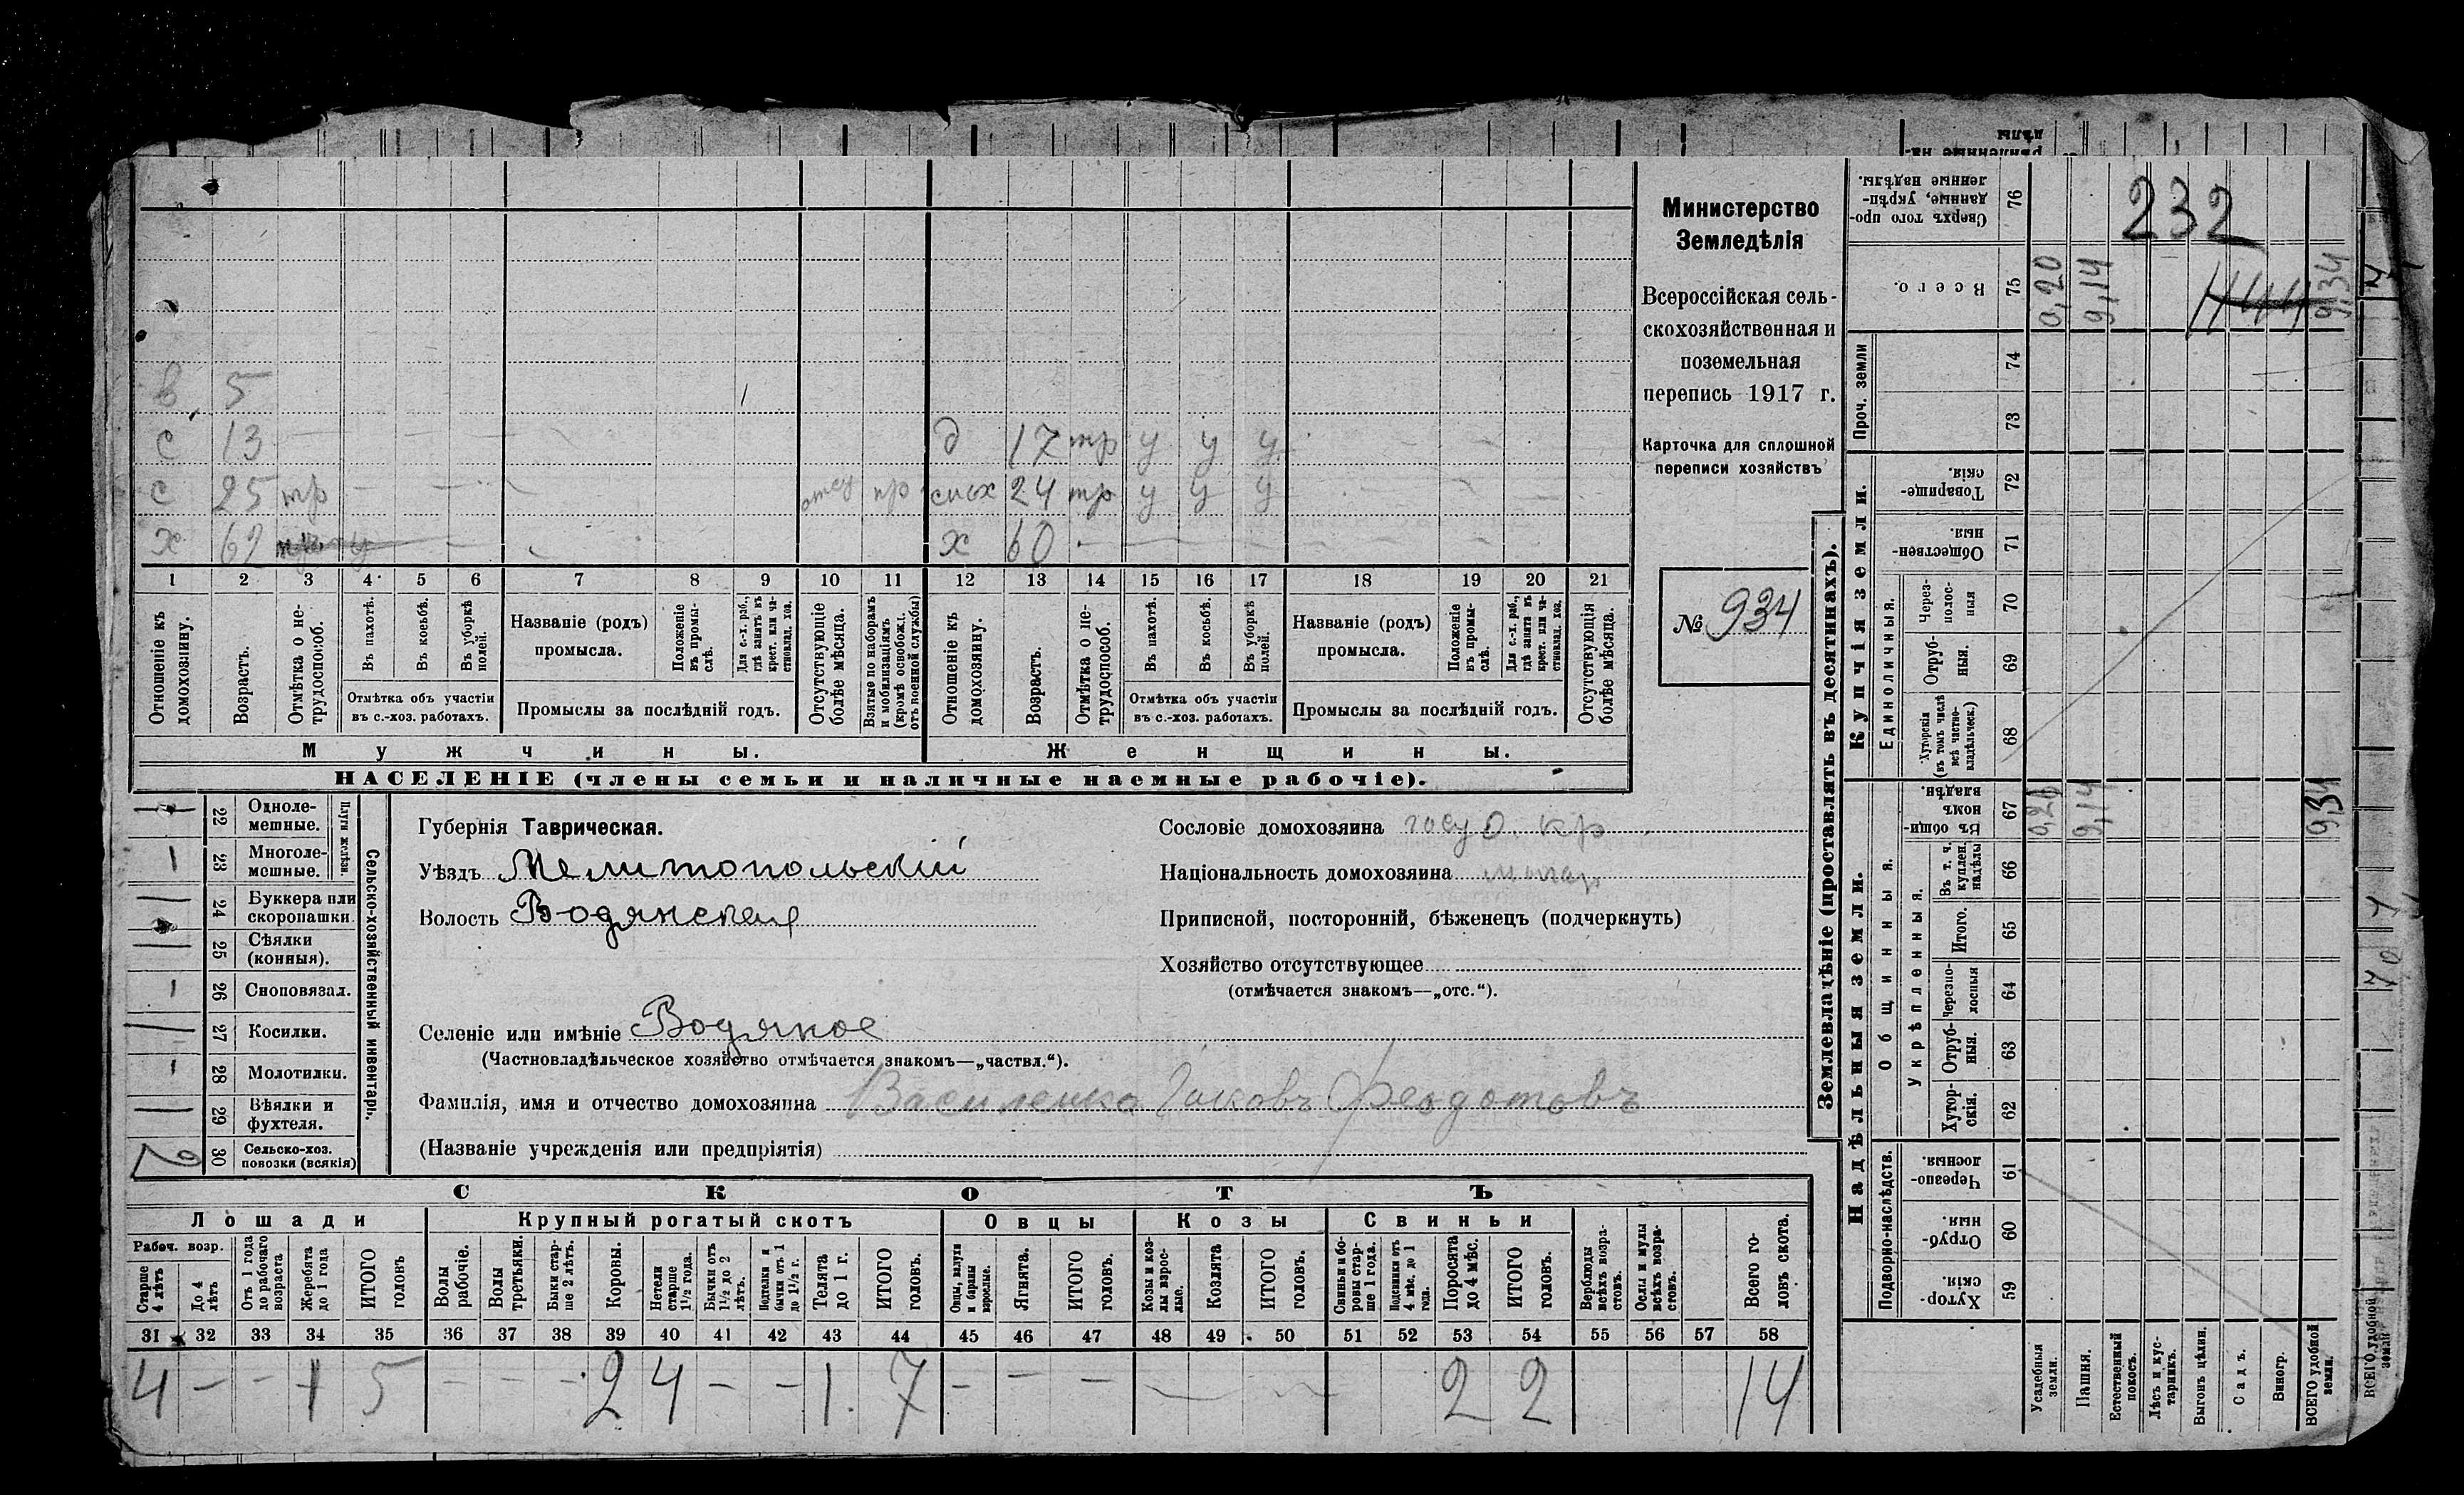 рѣленные на-
дѣлы
в 5
с 13 — — — —
д 17 тр у у у
с 25 тр — — — отсу пр
снох 24 тр у у у
х 62
х 60 —
1 2 3 4 5 6 7 8 9 10 11 12 13 14 15 16 17 18 19 20 21
Отношеніе къ домохозяину.
Возрастъ.
Отмѣтка о не-трудоспособ.
Въ пахотѣ.
Въ косьбѣ.
Въ уборкѣ полей.
Отмѣтка объ участіи въ с.-хоз. работахъ.
Названіе (родъ) промысла.
Положеніе въ промы-слѣ.
Для с.-х. раб., гдѣ занятъ въ крест. или ча-стновлад. хоз.
Промыслы за послѣдній годъ.
Отсутствующіе болѣе мѣсяца.
Взятые по наборамъ и мобилизаціямъ (кромѣ освобожд. отъ военной службы)
Отношеніе къ домохозяину.
Возрастъ.
Отмѣтка о не-трудоспособ.
Въ пахотѣ.
Въ косьбѣ.
Въ уборкѣ полей.
Отмѣтка объ участіи въ с.-хоз. работахъ.
Названіе (родъ) промысла.
Положеніе въ промы-слѣ.
Для с.-х. раб., гдѣ занята въ крест. или ча-стновлад. хоз.
Промыслы за послѣдній годъ.
Отсутствующія болѣе мѣсяца.
Мужчины.
Женщины.
НАСЕЛЕНІЕ (члены семьи и наличные наемные рабочіе).
Министерство
Земледѣлія
Всероссійская сель-
скохозяйственная и
поземельная
перепись 1917 г.
Карточка для сплошной
переписи хозяйствъ
№ 934
Сельско-хозяйственный инвентарь.
Плуги желѣзн.
22 Одноле-мешные. —
23 Многоле-мешные. 1
24 Буккера или скоропашки. —
25 Сѣялки (конныя). —
26 Сноповязал. 1
27 Косилки. —
28 Молотилки. 1
29 Вѣялки и фухтеля. —
30 Сельско-хоз. повозки (всякія) 2
Губернія Таврическая.
Уѣздъ Мелитопольскій
Волость Водянская
Селеніе или имѣніе Водяное
(Частновладѣльческое хозяйство отмѣчается знакомъ—„частвл.“).
Фамилія, имя и отчество домохозяина Василенко Яковъ Феодотовъ
(Названіе учрежденія или предпріятія)
Сословіе домохозяина госуд. кр
Національность домохозяина
Приписной, посторонній, бѣженецъ (подчеркнуть)
Хозяйство отсутствующее
(отмѣчается знакомъ—„отс.“).
СКОТЪ
Лошади
Крупный рогатый скотъ
Овцы
Козы
Свиньи
Рабоч. возр.
Старше 4 лѣтъ
До 4 лѣтъ
Отъ 1 года до рабочаго возраста
Жеребята до 1 года
ИТОГО головъ
Волы рабочіе.
Волы третьяки.
Быки стар-ше 2 лѣтъ.
Коровы.
Нетели старше 1½ года.
Бычки отъ 1½ до 2 лѣтъ.
Подтелки и бычки отъ 1 до 1½ г.
Телята до 1 г.
ИТОГО головъ.
Овцы, валухи и бараны взрослые.
Ягнята.
ИТОГО головъ.
Козы и коз-лы взрос-лые.
Козлята
ИТОГО головъ.
Свиньи и бо-ровы стар-ше 1 года.
Подсвинки отъ 4 мѣс. до 1 года.
Поросята до 4 мѣс.
ИТОГО головъ.
Верблюды всѣхъ возра-стовъ.
Ослы и мулы всѣхъ возра-стовъ.
Всего го-ловъ скота.
31 32 33 34 35 36 37 38 39 40 41 42 43 44 45 46 47 48 49 50 51 52 53 54 55 56 57 58
4 — — 1 5 — — — 2 4 — — 1 7 — — — 2 2 14
Землевладѣніе (проставлять въ десятинахъ).
Купчія земли.
Надѣльныя земли.
232
Сверхъ того про-данные, укрѣп-ленные надѣлы. 76
Всего. 75 0,20 9,14 9,34
Проч. земли 74
73
Товарище-скія. 72
Обществен-ныя. 71
Единоличныя.
Через-полос-ныя 70
Отруб-ныя. 69
Хуторскія (въ томъ числѣ всѣ частно-владѣльческ.) 68
Общинныя.
Въ общин-номъ владѣн. 67 0,20 9,14 9,34
Укрѣпленныя.
Въ т. ч. куплен. надѣлы 66
Итого. 65
Черезпо-лосныя 64
Отруб-ныя. 63
Хутор-скія. 62
Подворно-наслѣдств.
Черезпо-лосныя. 61
Отруб-ныя. 60
Хутор-скія. 59
Усадебныя земли.
Пашня.
Естественный покосъ.
Лѣсъ и кус-тарникъ.
Выгонъ цѣлин.
Садъ.
Виногр.
ВСЕГО удобной земли.
ВСЕГО удобной земли